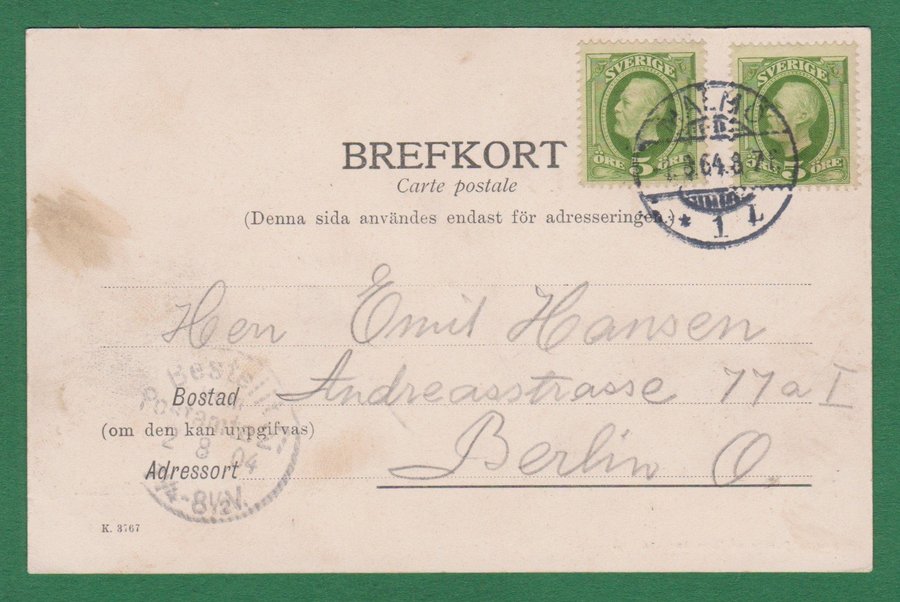 SVERIGE SVERIGE
5 ÖRE ÖRE
MALMÖ
1 L
BREFKORT
Carte postale
(Denna sida användes endast för adresseringen.)
Herr Emil Hansen
Andreasstrasse 77a I
Berlin O.
Bostad
(om den kan uppgifvas)
Adressort
Bestellt
Postamt
2 8 04
K. 3767